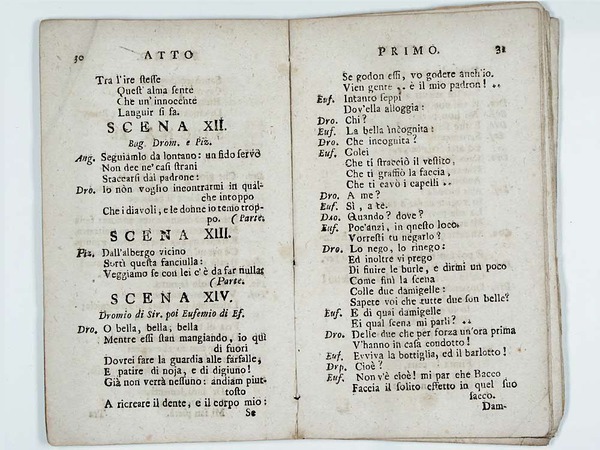 30 ATTO
Tra l'ire stesse
Quest' alma sente
Che un' innocente
Languir si fa.
SCENA XII.
Bag. Drom. e Piz.
Ang. Seguiamlo da lontano: un fido servo
Non dee ne' casi strani
Staccarsi dal padrone:
Dro. Io non voglio incontrarmi in qual-
che intoppo
Che i diavoli, e le donne io temo trop-
po. (Parte.
SCENA XIII.
Piz. Dall'albergo vicino
Sortì questa fanciulla:
Veggiamo se con lei c'è da far nulla;
(Parte.
SCENA XIV.
Dromio di Sir. poi Eufemio di Ef.
Dro. O bella, bella, bella
Mentre essi stan mangiando, io quì
di fuori
Dovrei fare la guardia alle farfalle,
E patire di noja, e di digiuno!
Già non verrà nessuno: andiam piut-
tosto
A ricreare il dente, e il corpo mio:
Se
PRIMO. 31
Se godon essi, vo godere anch'io.
Vien gente .. è il mio padron! ..
Euf. Intanto seppi
Dov'ella alloggia:
Dro. Chi?
Euf. La bella incognita:
Dro. Che incognita?
Euf. Colei
Che ti stracciò il vestito,
Che ti graffiò la faccia,
Che ti cavò i capelli ..
Dro. A me?
Euf. Sì, a te.
Dro. Quando? dove?
Euf. Poc'anzi, in questo loco.
Vorresti tu negarlo?
Dro. Lo nego, lo rinego:
Ed inoltre vi prego
Di finire le burle, e dirmi un poco
Come finì la scena
Colle due damigelle:
Sapete voi che tutte due son belle?
Euf. E di quai damigelle
Ei qual scena mi parli? ..
Dro. Delle due che per forza un'ora prima
V'hanno in casa condotto!
Euf. Evviva la bottiglia, ed il barlotto!
Drp. Cioè?
Euf. Non v'è cioè! mi par che Bacco
Faccia il solito effetto in quel suo
sacco.
Dam-